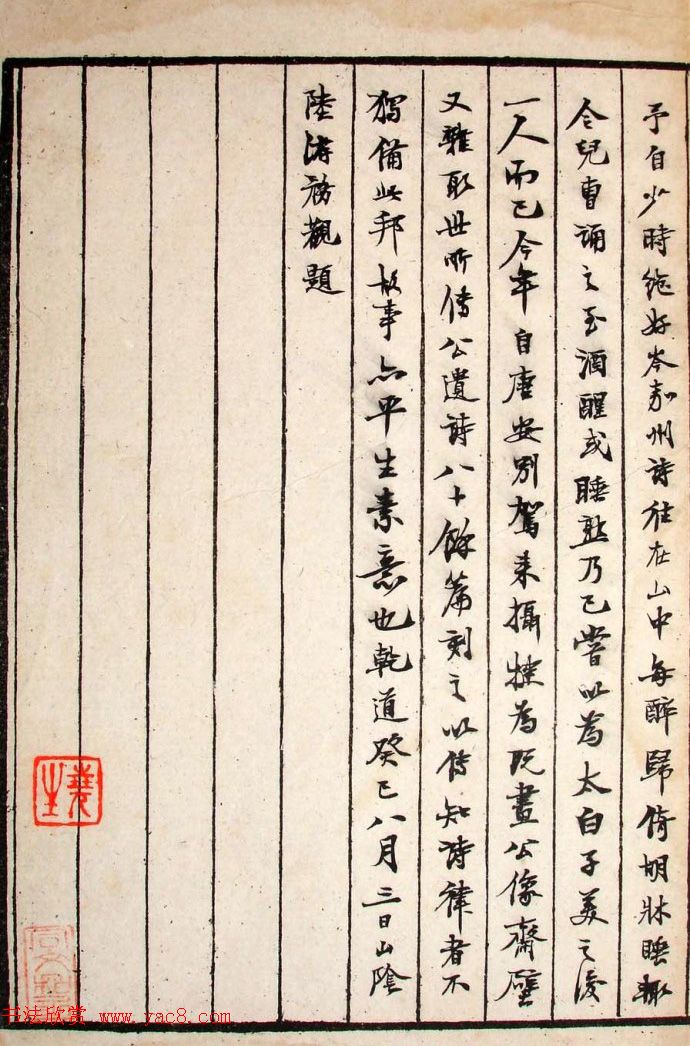 予自少時絶好岑嘉州詩往在山中每醉歸倚胡牀睡輒
令兒曹誦之至酒醒或睡熟乃已嘗以為太白子美之後
一人而已今年自唐安別駕来攝犍為既畫公像齋壁
又雜取世所傳公遺詩八十餘篇刻之以傳知詩律者不
獨備此邦故事亦平生素意也乾道癸巳八月三日山陰
陸游務觀題
书法欣赏 www.yac8.com